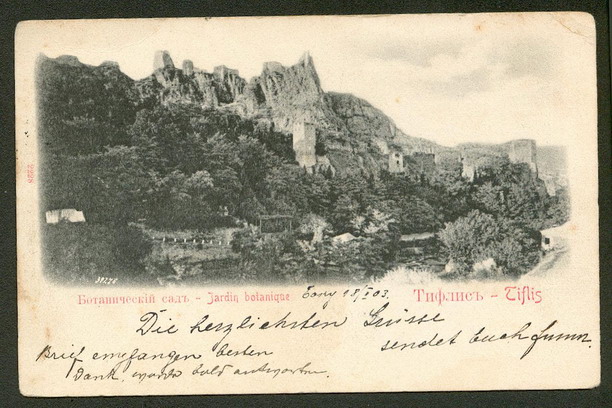 39276
Ботаническій садъ - Jardin botanique
18/I 03.
Тифлисъ - Tiflis
Die herzlichsten Grüsse
sendet
Brief empfangen besten
Dank, werde bald antworten.